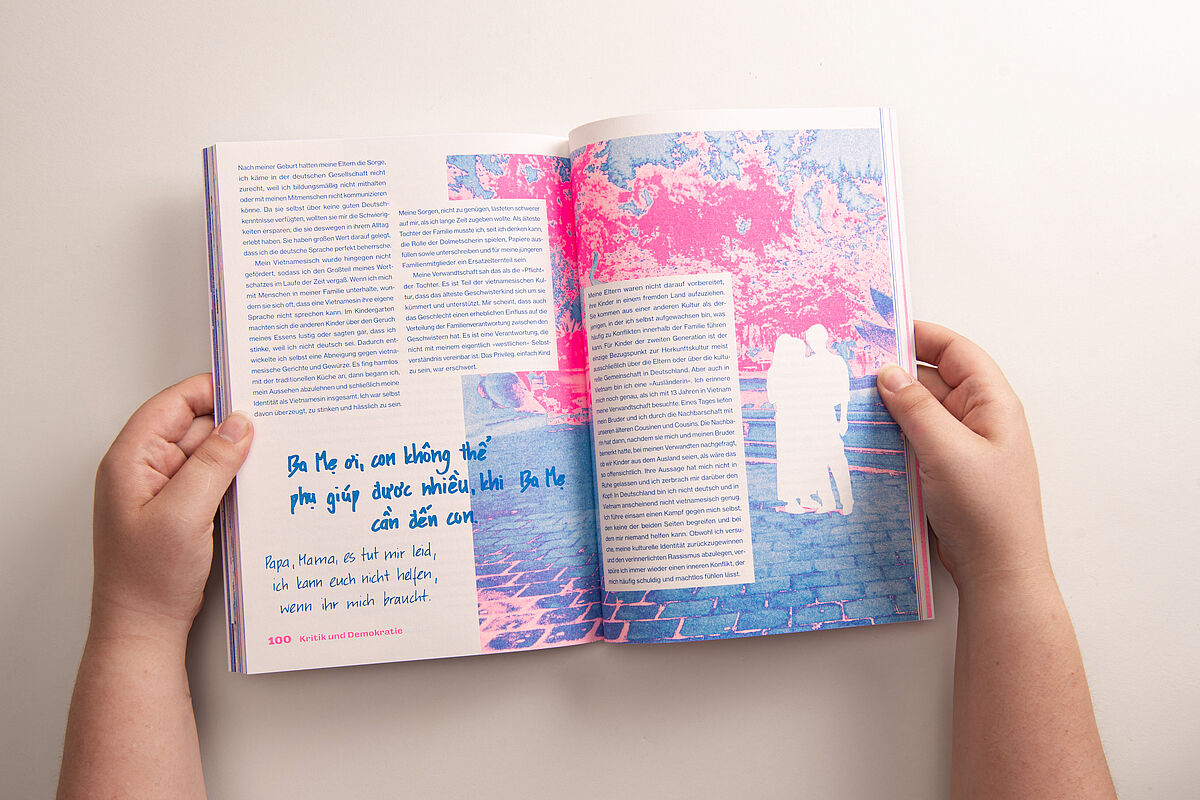 Nach meiner Geburt hatten meine Eltern die Sorge,
ich käme in der deutschen Gesellschaft nicht
zurecht, weil ich bildungsmäßig nicht mithalten
oder mit meinen Mitmenschen nicht kommunizieren
könne. Da sie selbst über keine guten Deutsch-
kenntnisse verfügten, wollten sie mir die Schwierig-
keiten ersparen, die sie deswegen in ihrem Alltag
erlebt haben. Sie haben großen Wert darauf gelegt,
dass ich die deutsche Sprache perfekt beherrsche.
Mein Vietnamesisch wurde hingegen nicht
gefördert, sodass ich den Großteil meines Wort-
schatzes im Laufe der Zeit vergaß. Wenn ich mich
mit Menschen in meiner Familie unterhalte, wun-
dern sie sich oft, dass eine Vietnamesin ihre eigene
Sprache nicht sprechen kann. Im Kindergarten
machten sich die anderen Kinder über den Geruch
meines Essens lustig oder sagten gar, dass ich
stinke, weil ich nicht deutsch sei. Dadurch ent-
wickelte ich selbst eine Abneigung gegen vietna-
mesische Gerichte und Gewürze. Es fing harmlos
mit der traditionellen Küche an, dann begann ich,
mein Aussehen abzulehnen und schließlich meine
Identität als Vietnamesin insgesamt. Ich war selbst
davon überzeugt, zu stinken und hässlich zu sein.
Meine Sorgen, nicht zu genügen, lasteten schwerer
auf mir, als ich lange Zeit zugeben wollte. Als älteste
Tochter der Familie musste ich, seit ich denken kann,
die Rolle der Dolmetscherin spielen, Papiere aus-
füllen sowie unterschreiben und für meine jüngeren
Familienmitglieder ein Ersatzelternteil sein.
Meine Verwandtschaft sah das als die »Pflicht«
der Tochter. Es ist Teil der vietnamesischen Kul-
tur, dass das älteste Geschwisterkind sich um sie
kümmert und unterstützt. Mir scheint, dass auch
das Geschlecht einen erheblichen Einfluss auf die
Verteilung der Familienverantwortung zwischen den
Geschwistern hat. Es ist eine Verantwortung, die
nicht mit meinem eigentlich »westlichen« Selbst-
verständnis vereinbar ist. Das Privileg, einfach Kind
zu sein, war erschwert.
Ba Mẹ ơi, con không thể
phụ giúp được nhiều, khi Ba Mẹ
cần đến con.
Papa, Mama, es tut mir leid,
ich kann euch nicht helfen,
wenn ihr mich braucht.
100 Kritik und Demokratie
Meine Eltern waren nicht darauf vorbereitet,
ihre Kinder in einem fremden Land aufzuziehen.
Sie kommen aus einer anderen Kultur als der-
jenigen, in der ich selbst aufgewachsen bin, was
häufig zu Konflikten innerhalb der Familie führen
kann. Für Kinder der zweiten Generation ist der
einzige Bezugspunkt zur Herkunftskultur meist
ausschließlich über die Eltern oder über die kultu-
relle Gemeinschaft in Deutschland. Aber auch in
Vietnam bin ich eine »Ausländerin«. Ich erinnere
mich noch genau, als ich mit 13 Jahren in Vietnam
meine Verwandtschaft besuchte. Eines Tages liefen
mein Bruder und ich durch die Nachbarschaft mit
unseren älteren Cousinen und Cousins. Die Nachba-
rin hat dann, nachdem sie mich und meinen Bruder
bemerkt hatte, bei meinen Verwandten nachgefragt,
ob wir Kinder aus dem Ausland seien, als wäre das
so offensichtlich. Ihre Aussage hat mich nicht in
Ruhe gelassen und ich zerbrach mir darüber den
Kopf: In Deutschland bin ich nicht deutsch und in
Vietnam anscheinend nicht vietnamesisch genug.
Ich führe einsam einen Kampf gegen mich selbst,
den keine der beiden Seiten begreifen und bei
dem mir niemand helfen kann. Obwohl ich versu-
che, meine kulturelle Identität zurückzugewinnen
und den verinnerlichten Rassismus abzulegen, ver-
spüre ich immer wieder einen inneren Konflikt, der
mich häufig schuldig und machtlos fühlen lässt.